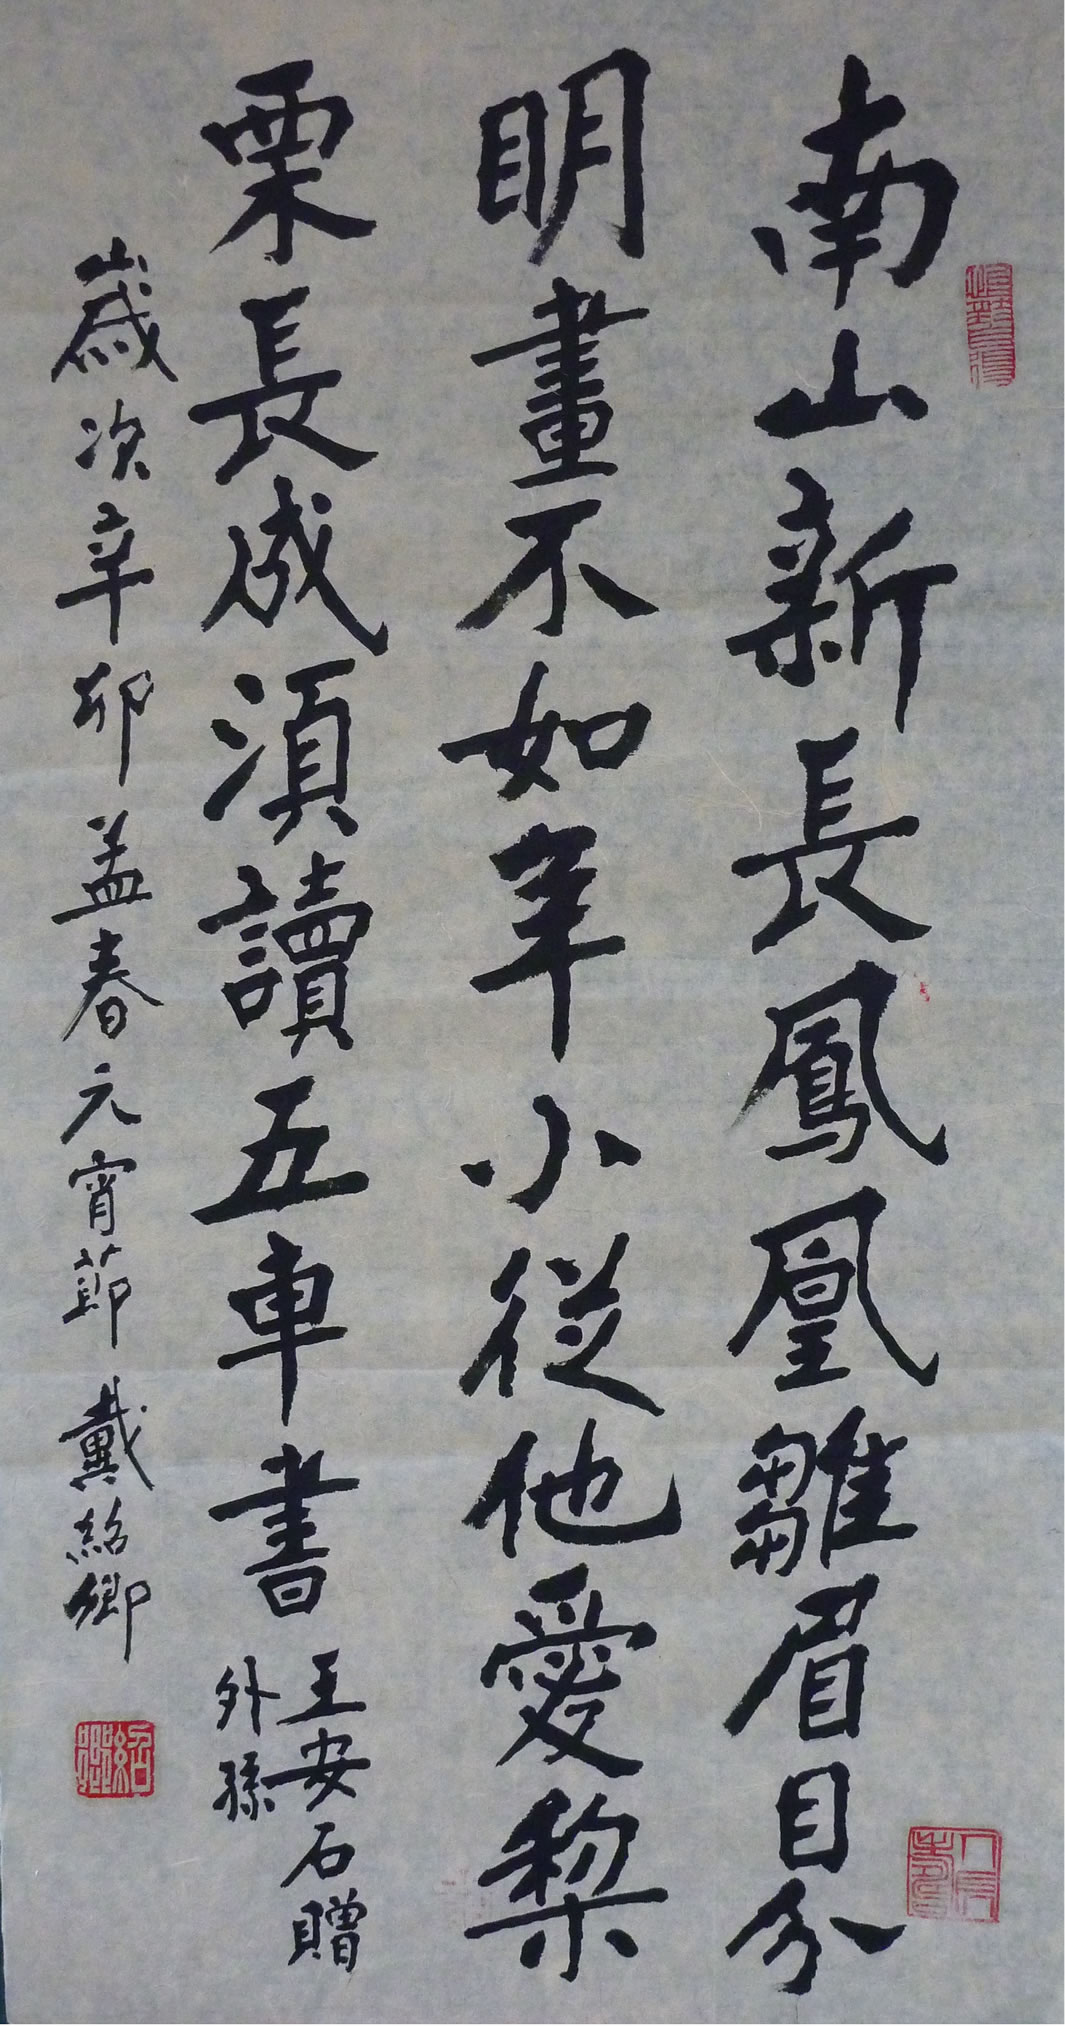 南山新長鳳凰雛眉目分
明畫不如年小從他愛棃
栗長成須讀五車書
王安石贈
外孫
歲次辛卯孟春元宵節 戴紹卿